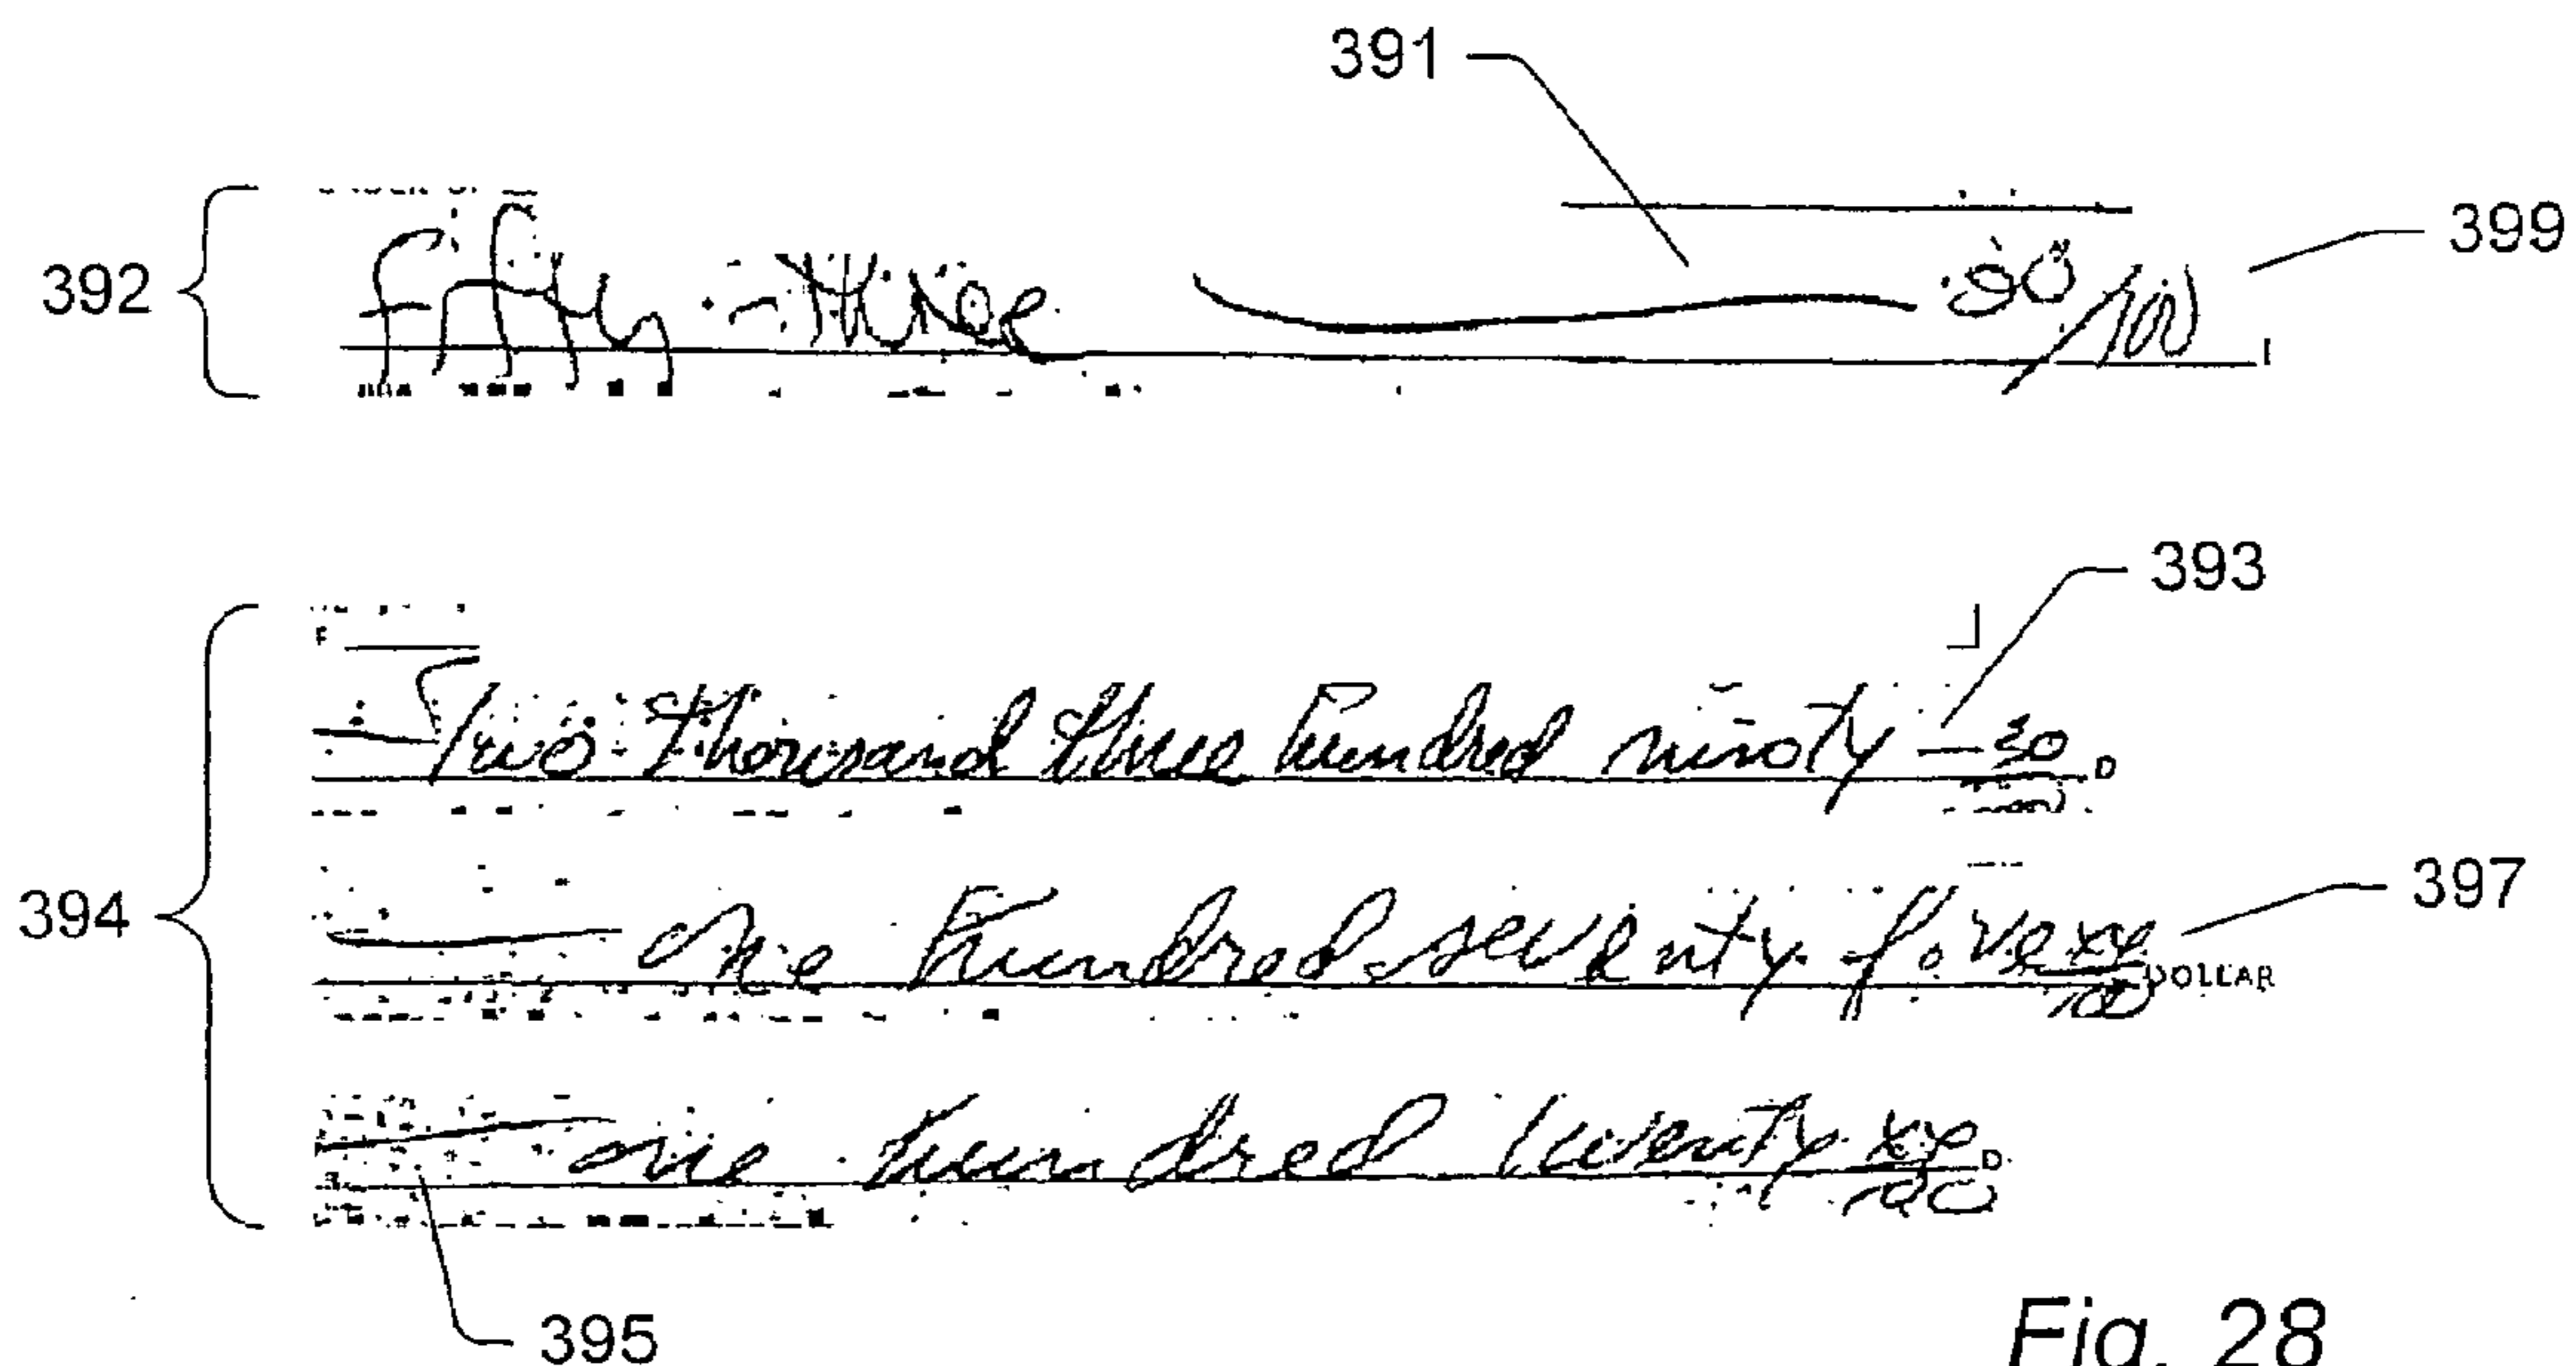 391
399
392
fifty - three /100
393
Two thousand three hundred ninety — 30 D
100
397
394
one hundred seventy five xx DOLLAR
100
one hundred twenty xx D
100
395
Fig. 28